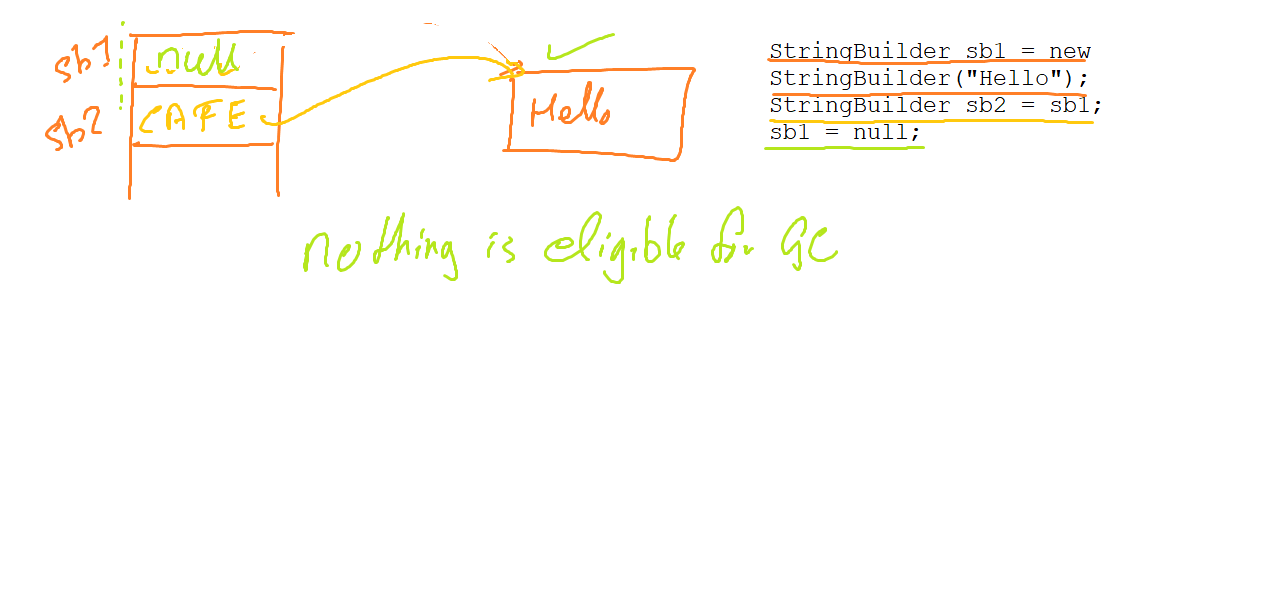 sb1 null
sb2 CAFE
Hello
StringBuilder sb1 = new
StringBuilder("Hello");
StringBuilder sb2 = sb1;
sb1 = null;
nothing is eligible for GC